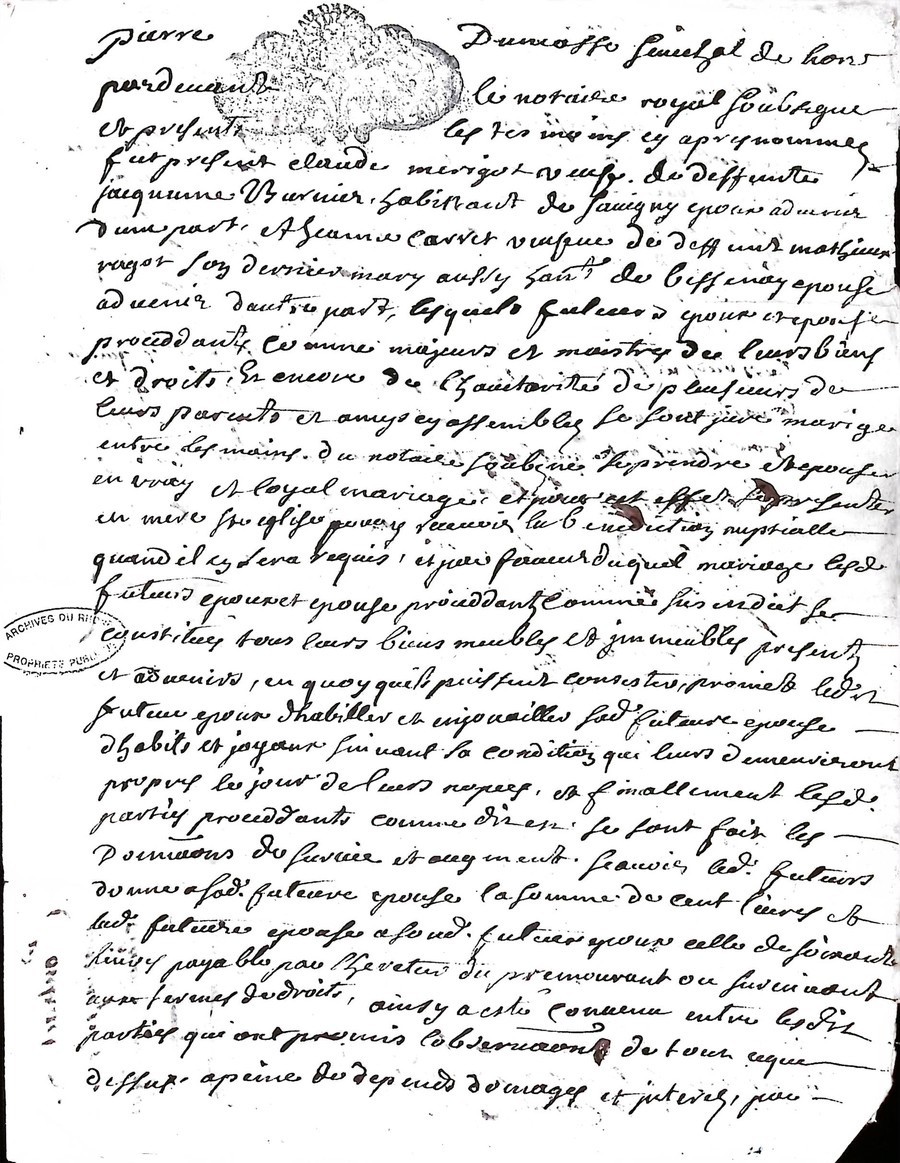 pierre Dumosse Senechal de
pardevant le notaire royal Soubsigne
et presents les tesmoins cy apres nommez
fut present claude merigot veufe. de deffunte
jacqueme Burnier, habittant de Savigny epoux advenir
dune part, et Jeanne Carret veufve de deffunt mathieu
ragot son dernier mary aussy hant de bessenay epouse
advenir dautre part, lesquels futeurs epoux et epouse
proceddants comme majeurs et maistres de leurs biens
et droits, Et encore de lhautorité de plusieurs de
leurs parents et amys cy assemblez se sont juré mariage
entre les mains. du notaire soubsiné se prendre et epouser
en vray et loyal mariage, et pour cet effet se presenter
en mere ste eglise pour y recevoir la benediction nuptialle
quand il en sera requis, et par faveur duquel mariage lesd
futeurs epoux et epouse proceddant comme sus est dict se
ARCHIVES DU RHÔNE
PROPRIÉTÉ PUBLIQUE
constitues tous leurs biens meubles et jmmeubles presents
et advenirs, en quoy quils puissent consester, promet ledit
futeur epoux dhabiller et enjouailler sad. future epouse
dhabits et joyaux suivant sa condition qui leurs demeureront
propres le jour de leurs nopces, et finallement lesd.
parties proceddants comme dit est. se sont fait les
Donnaons de survie et augment. scavoir led. futeurs
donne a sad. futeure epouse la somme de cent livres et
lad. futeure epouse a sond. futeur epoux celle de soixante
livres payable par lheretier du premourant au survivant
aux termes de droits, ainsy a esté convenu entre lesdit
parties qui ont promis lobservaons de tout ce que
dessus. a peine de depends domages et jnterez, par